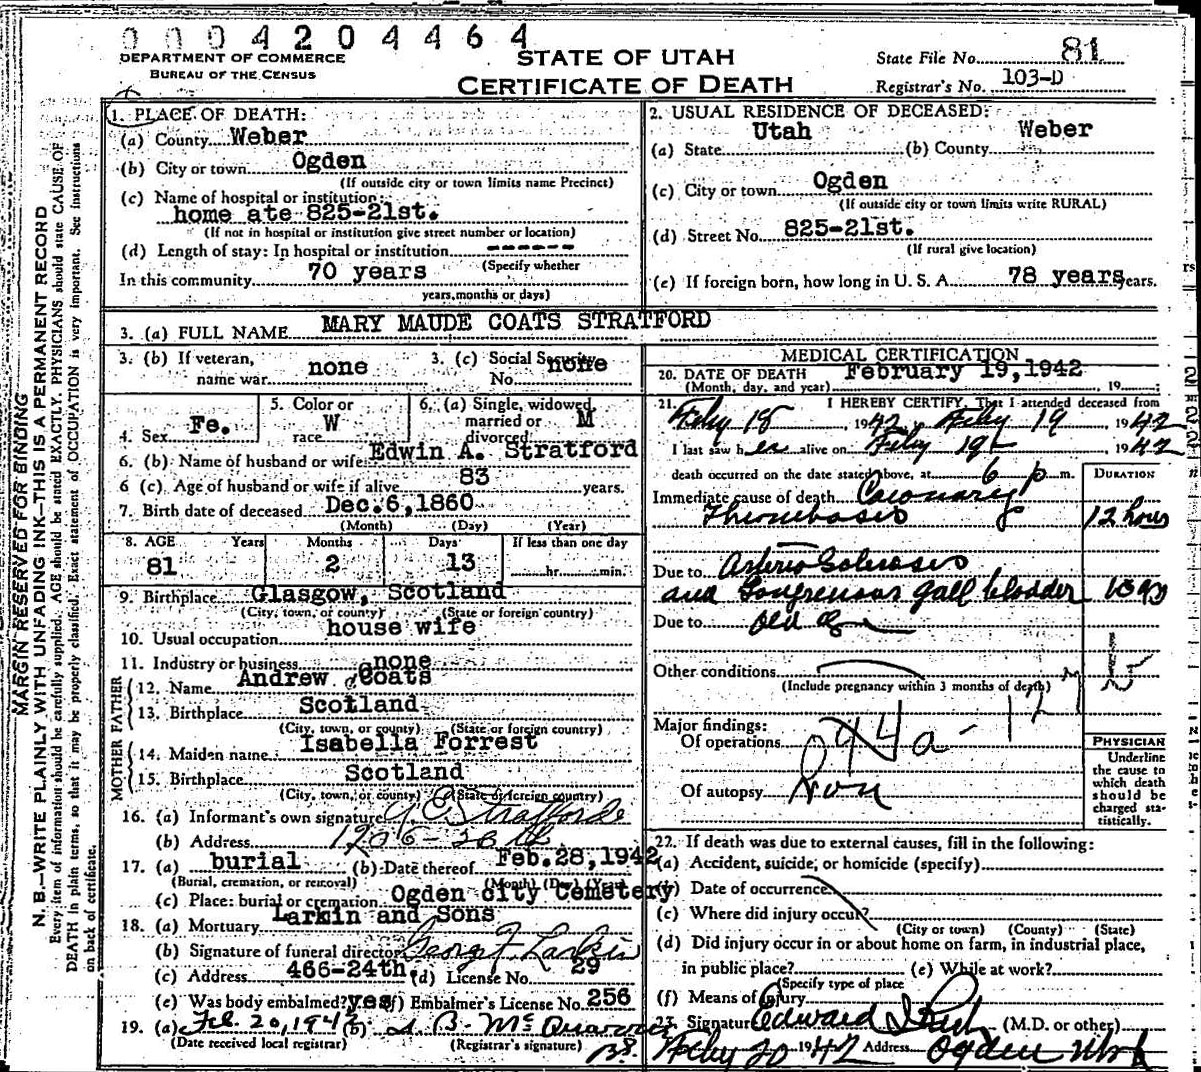 0 0 0 4 2 0 4 4 6 4
DEPARTMENT OF COMMERCE
BUREAU OF THE CENSUS
STATE OF UTAH
CERTIFICATE OF DEATH
State File No. 81
Registrar's No. 103-D
MARGIN RESERVED FOR BINDING
N. B.—WRITE PLAINLY WITH UNFADING INK—THIS IS A PERMANENT RECORD
Every item of information should be carefully supplied. AGE should be stated EXACTLY. PHYSICIANS should state CAUSE OF
DEATH in plain terms, so that it may be properly classified. Exact statement of OCCUPATION is very important. See instructions
on back of certificate.
1. PLACE OF DEATH:
(a) County Weber
(b) City or town Ogden
(If outside city or town limits name Precinct)
(c) Name of hospital or institution:
home ate 825-21st.
(If not in hospital or institution give street number or location)
(d) Length of stay: In hospital or institution ------
(Specify whether
In this community 70 years
years, months or days)
2. USUAL RESIDENCE OF DECEASED:
(a) State Utah (b) County Weber
(c) City or town Ogden
(If outside city or town limits write RURAL)
(d) Street No. 825-21st.
(If rural give location)
(e) If foreign born, how long in U. S. A. 78 years years.
3. (a) FULL NAME MARY MAUDE COATS STRATFORD
3. (b) If veteran, name war none
3. (c) Social Security No. none
4. Sex Fe.
5. Color or race W
6. (a) Single, widowed, married or divorced M
6. (b) Name of husband or wife Edwin A. Stratford
6 (c). Age of husband or wife if alive 83 years.
7. Birth date of deceased Dec. 6, 1860
(Month) (Day) (Year)
8. AGE Years Months Days If less than one day
81 2 13 hr. min.
9. Birthplace Glasgow, Scotland
(City, town, or county) (State or foreign country)
10. Usual occupation house wife
11. Industry or business none
FATHER
12. Name Andrew Coats
13. Birthplace Scotland
(City, town, or county) (State or foreign country)
MOTHER
14. Maiden name Isabella Forrest
15. Birthplace Scotland
(City, town, or county) (State or foreign country)
16. (a) Informant's own signature
(b) Address 1206-20th
17. (a) burial (b) Date thereof Feb. 28, 1942
(Burial, cremation, or removal) (Month) (Day) (Year)
(c) Place: burial or cremation Ogden city Cemetery
18. (a) Mortuary Larkin and Sons
(b) Signature of funeral director George F Larkin
(c) Address 466-24th. (d) License No. 29
(e) Was body embalmed? yes (f) Embalmer's License No. 256
19. (a) Feb. 20, 1942 (b)
(Date received local registrar) (Registrar's signature)
MEDICAL CERTIFICATION
20. DATE OF DEATH February 19, 1942
(Month, day, and year) , 19 ;
21. I HEREBY CERTIFY, That I attended deceased from
Feby 18 1942, Feby 19, 1942
I last saw her alive on Feby 19 1942
death occurred on the date stated above, at 6 p m.
DURATION
Immediate cause of death Coronary
Thrombosis 12 hours
Due to Arterio Sclerosis
and Gangrenous gall bladder
Due to old age
Other conditions
(Include pregnancy within 3 months of death)
Major findings:
Of operations
094a-
Of autopsy
PHYSICIAN
Underline
the cause to
which death
should be
charged sta-
tistically.
22. If death was due to external causes, fill in the following:
(a) Accident, suicide, or homicide (specify)
(b) Date of occurrence
(c) Where did injury occur?
(City or town) (County) (State)
(d) Did injury occur in or about home on farm, in industrial place,
in public place? (e) While at work?
(Specify type of place
(f) Means of injury
23. Signature Edward I Rich (M.D. or other)
Feby 20 1942 Address Ogden Utah